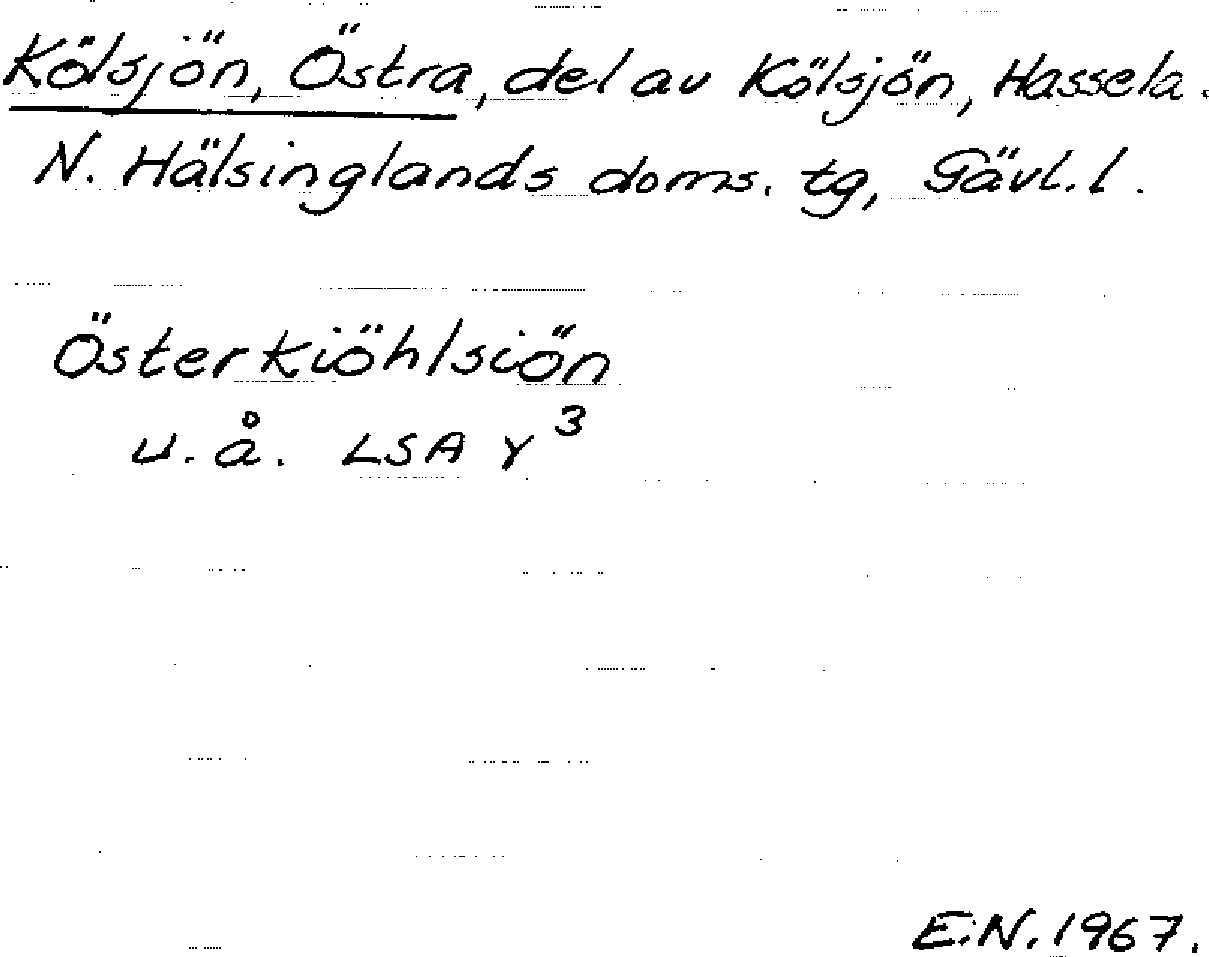 Kölsjön, Östra, del av Kölsjön, Hassela.
N. Hälsinglands doms. tg, Gävl. l.
Österkiöhlsiön
u. å. LSA Y³
E.N. 1967.